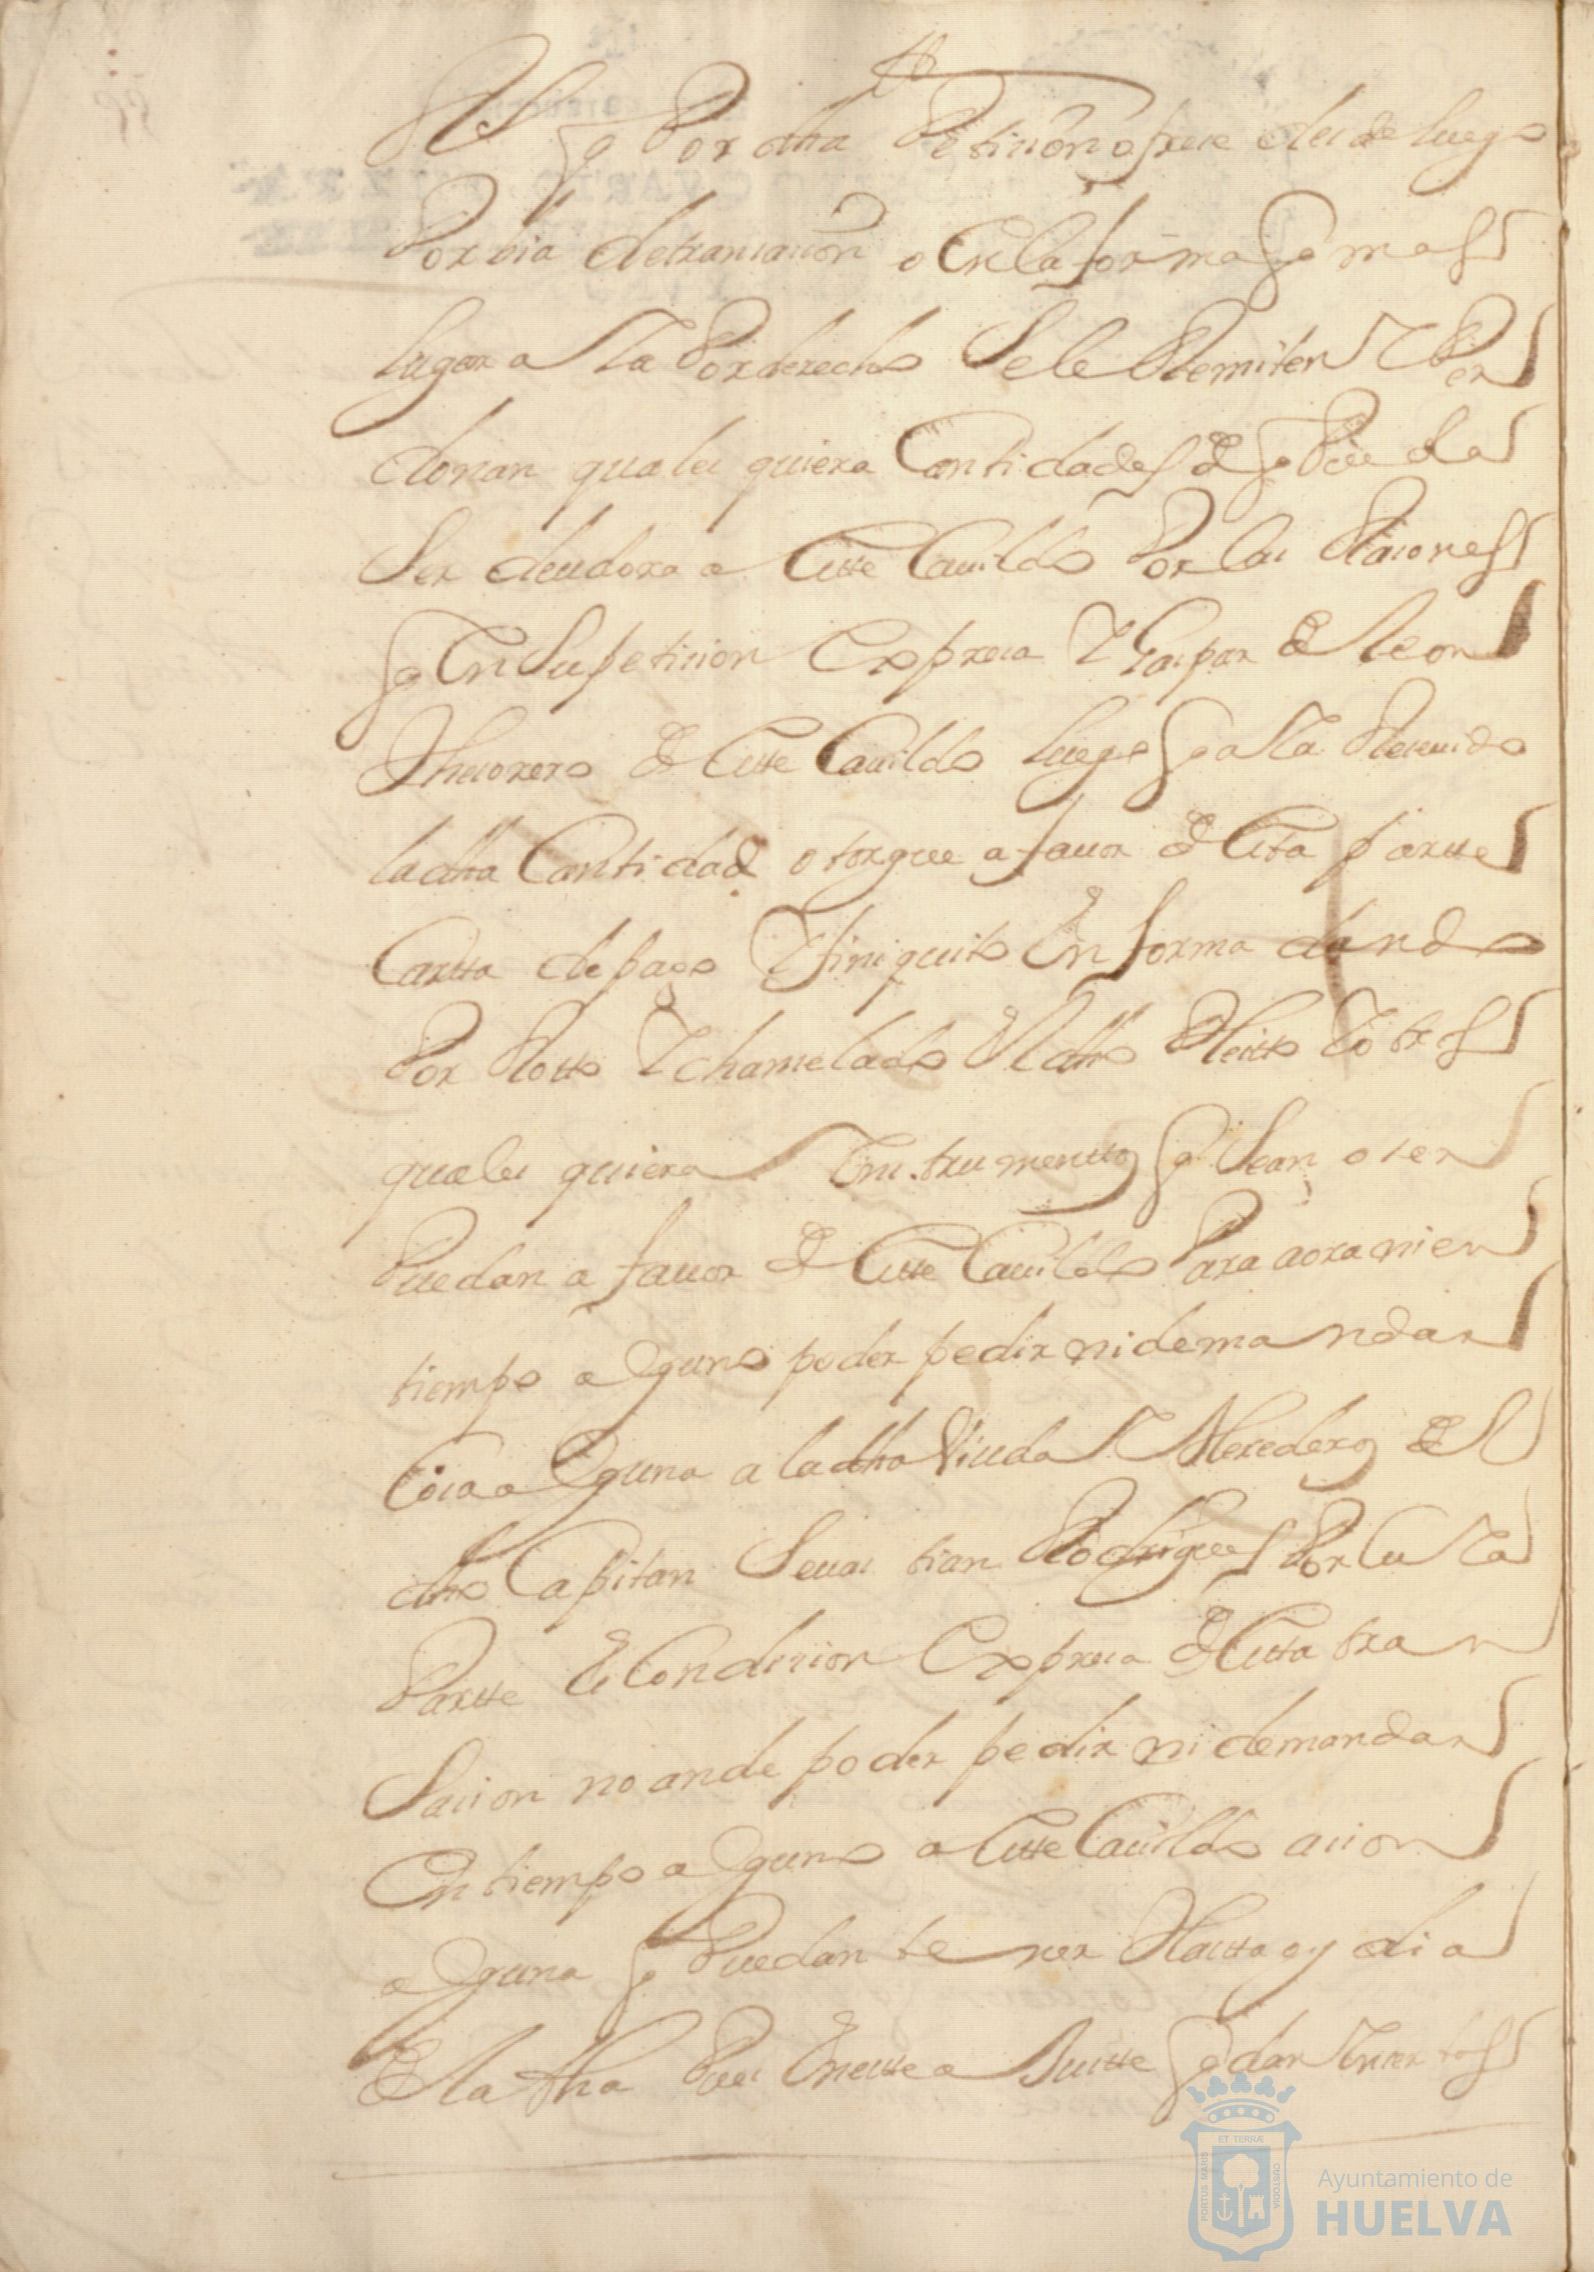 q̃ Por dha Peticion ofrece desde luego
Por bia de transacion o en la forma q̃ mas
lugar aya Por derecho Se le Remiten y Per
donan quales quiera Cantidades de q̃ Pueda
Ser deudora a este Cauildo Por las Raiones
q̃ en Su peticion Expresa y Gaspar de leon
thesorero de este Cauildo luego q̃ aya Reseuido
la dha Cantidad otorgue a fauor de esta partte
Cartta de pago y finiquito En forma dando
Por Rotto y chanselado el dho Pleitto y otros
quales quiera Instrumenttos q̃ Sean o ser
Puedan a fauor de este Cauildo Para aora ni en
tiempo alguno poder pedir ni demandar
Cosa alguna a la dha Viuda y Herederos del
dho Capitan Seuastian Rodrigues Por cuya
Partte Es Condicion Expresa de esta tran
Sacion no an de poder pedir ni demandar
En tiempo alguno a este Cauildo acion
alguna q̃ Puedan tener Hasta oy dia
de la fha Pues En este a Juste q̃dan Incertos
Ayuntamiento de
HUELVA
PORTUS MARIS
ET TERRÆ
CUSTODIA